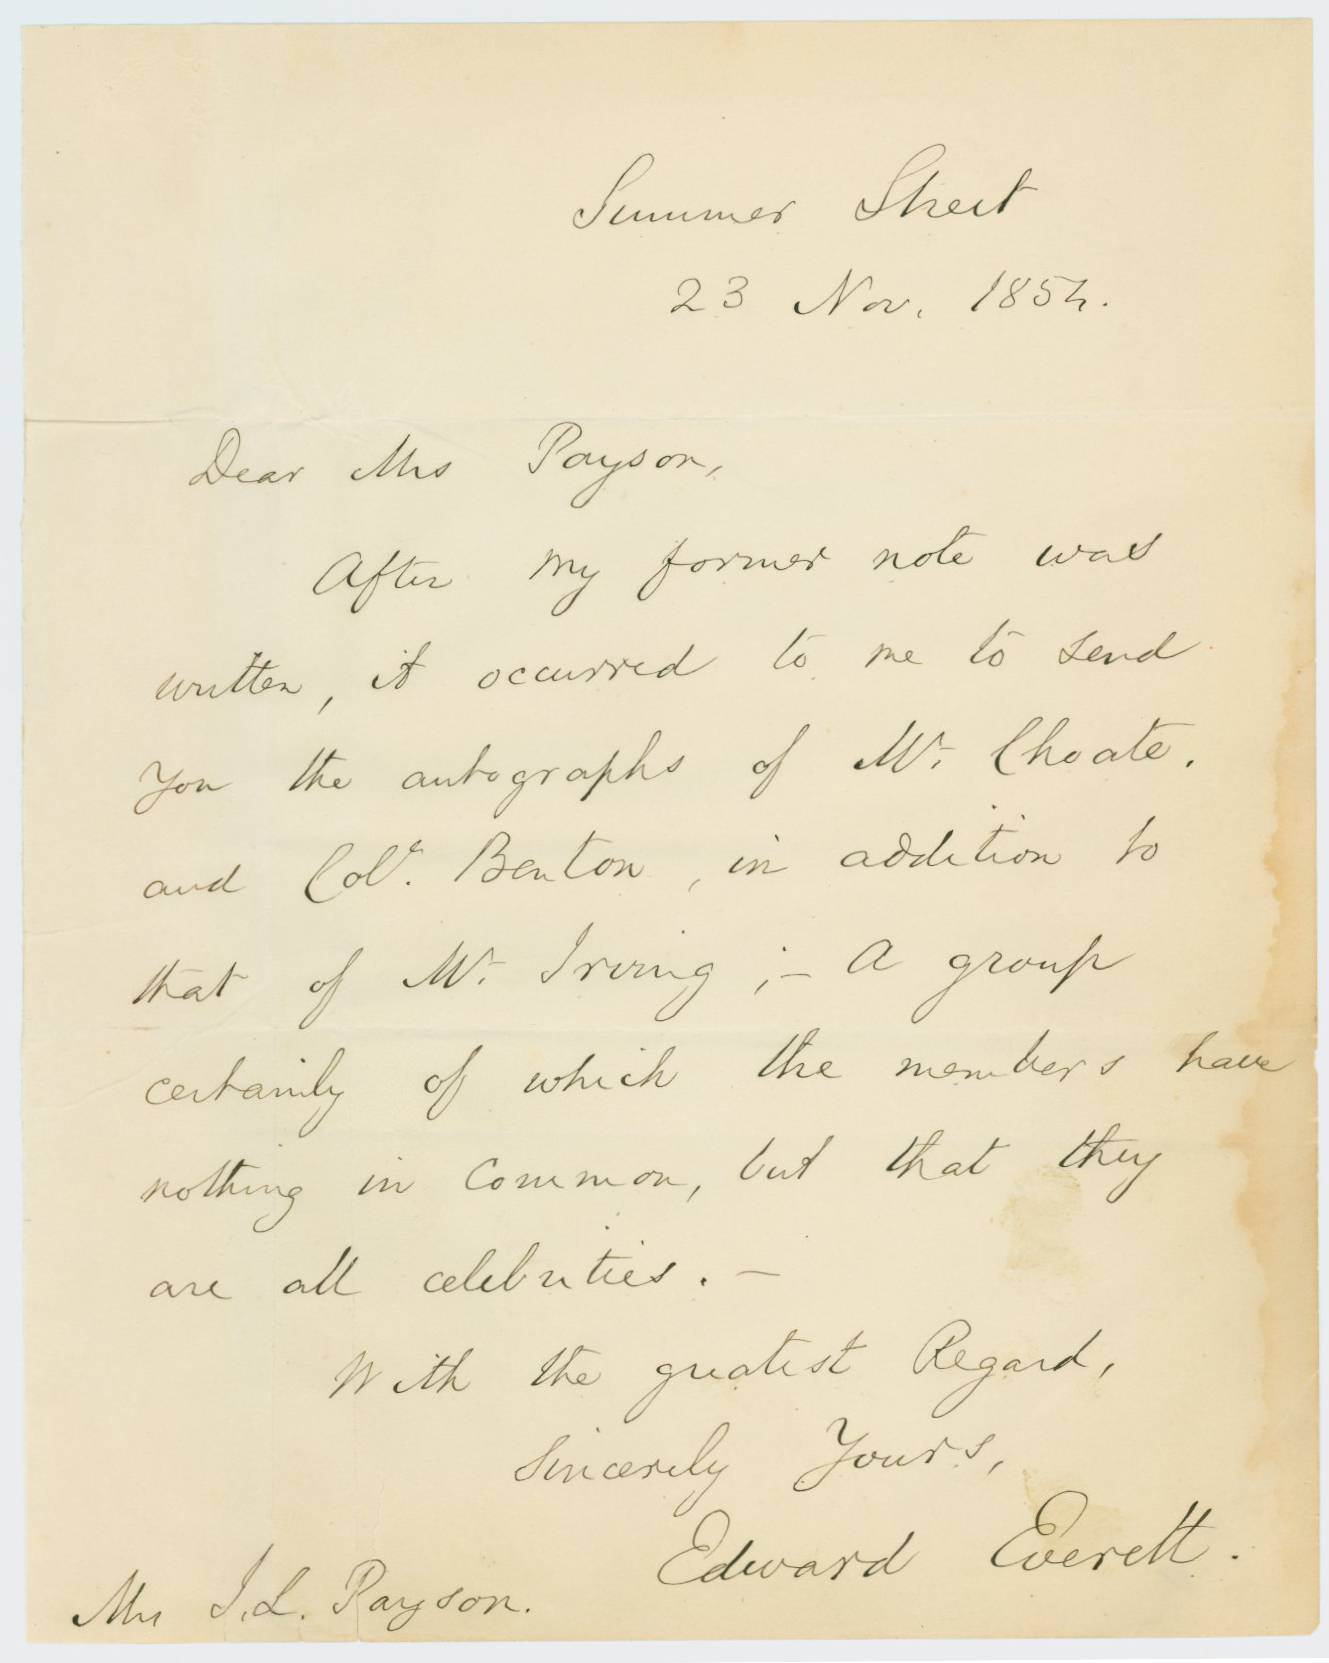 Summer Street
23 Nov. 1854.
Dear Mrs Payson,
After my former note was
written, it occurred to me to send
you the autographs of Mr. Choate.
and Col. Benton, in addition to
that of Mr. Irving;– a group
certainly of which the members have
nothing in common, but that they
are all celebrities. –
With the greatest Regard,
Sincerely Yours,
Edward Everett.
Mrs J. L. Payson.